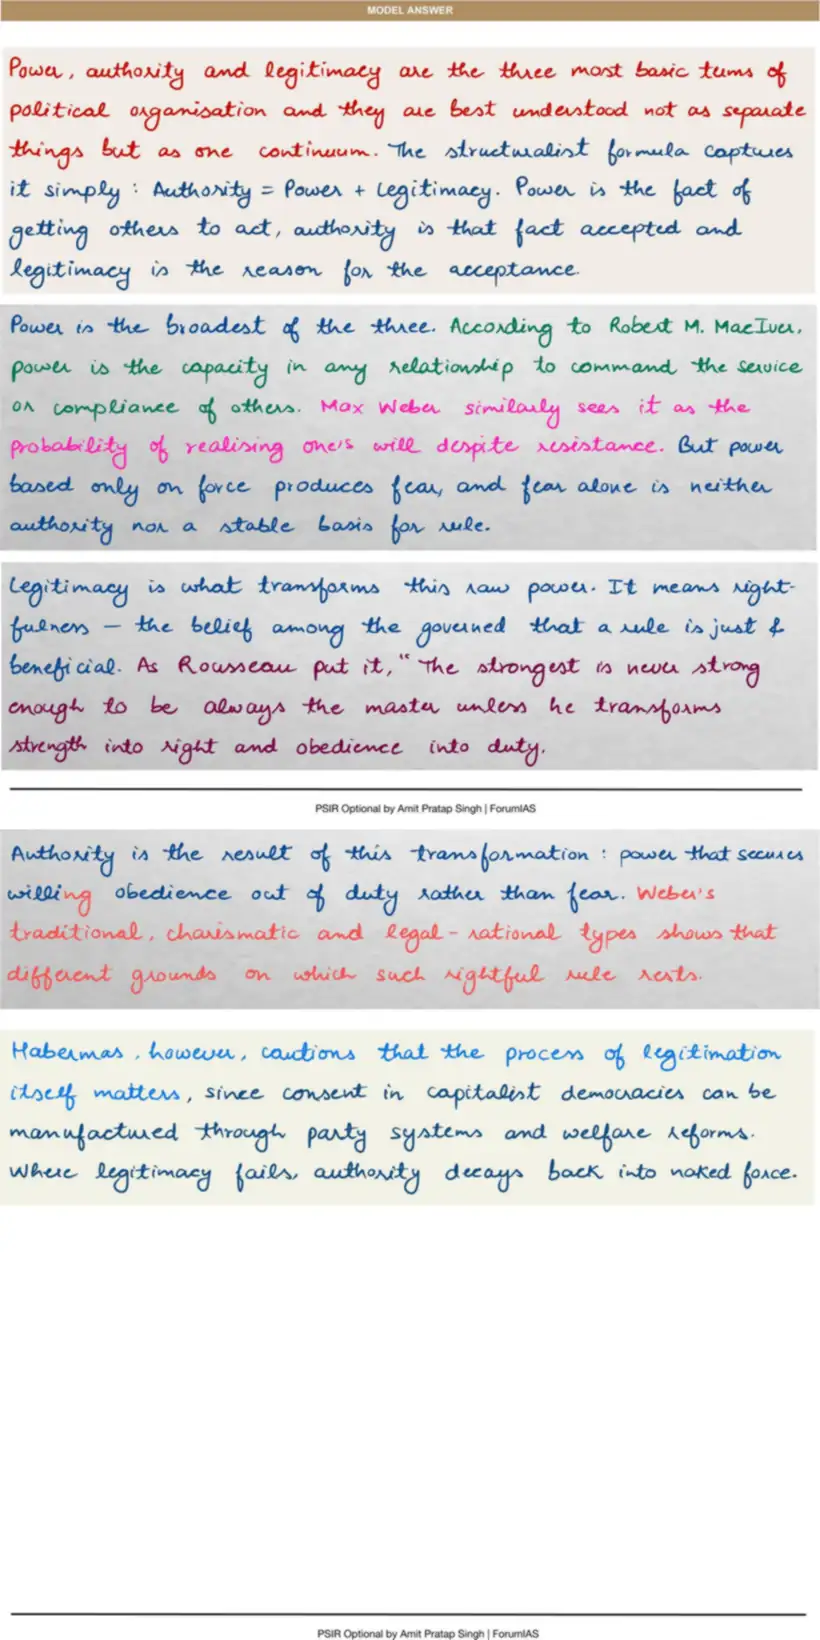 MODEL ANSWER
Power, authority and legitimacy are the three most basic terms of
political organisation and they are best understood not as separate
things but as one continuum. The structuralist formula captures
it simply : Authority = Power + Legitimacy. Power is the fact of
getting others to act, authority is that fact accepted and
legitimacy is the reason for the acceptance.
Power is the broadest of the three. According to Robert M. MacIver,
power is the capacity in any relationship to command the service
or compliance of others. Max Weber similarly sees it as the
probability of realising one's will despite resistance. But power
based only on force produces fear, and fear alone is neither
authority nor a stable basis for rule.
Legitimacy is what transforms this raw power. It means right-
fulness – the belief among the governed that a rule is just &
beneficial. As Rousseau put it, "The strongest is never strong
enough to be always the master unless he transforms
strength into right and obedience into duty.
PSIR Optional by Amit Pratap Singh | ForumIAS
Authority is the result of this transformation : power that secures
willing obedience out of duty rather than fear. Weber's
traditional, charismatic and legal-rational types shows that
different grounds on which such rightful rule rests.
Habermas, however, cautions that the process of legitimation
itself matters, since consent in capitalist democracies can be
manufactured through party systems and welfare reforms.
Where legitimacy fails, authority decays back into naked force.
PSIR Optional by Amit Pratap Singh | ForumIAS